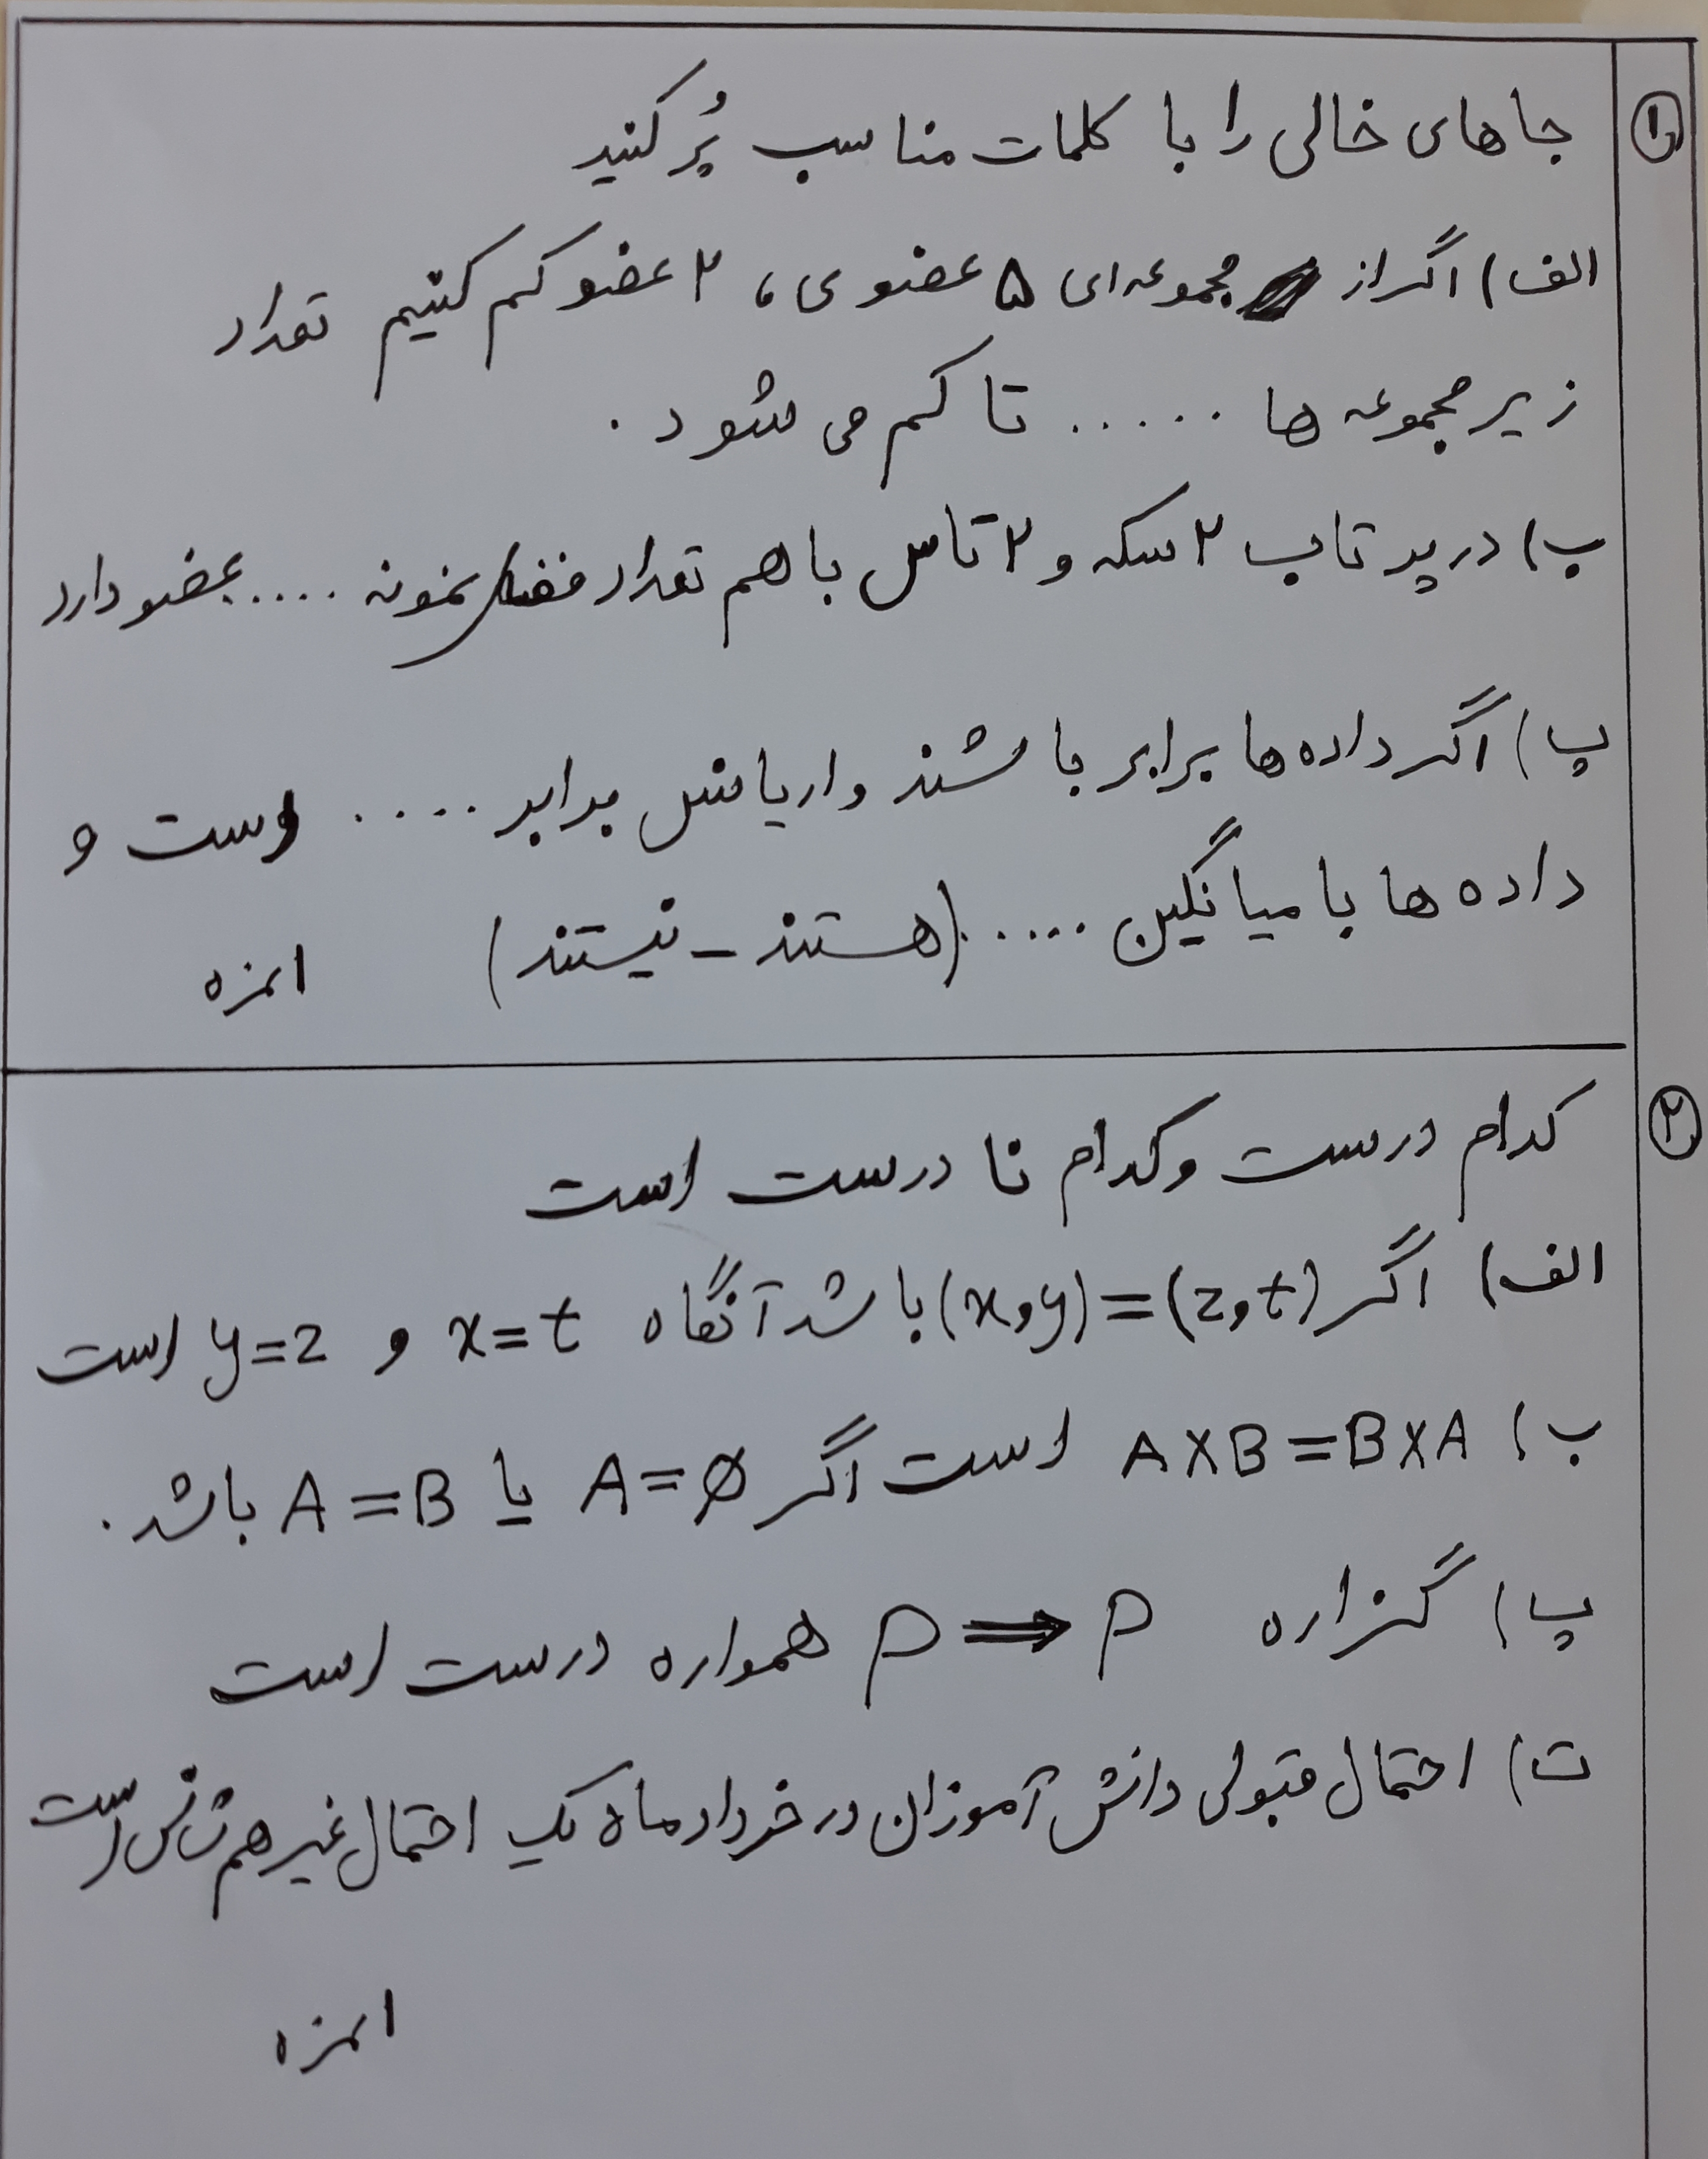 ۱
جاهای خالی را با کلمات مناسب پُر کنید
الف) اگر از مجموعه‌ای ۵ عضوی، ۲ عضو کم کنیم تعداد
زیر مجموعه ها ..... تا کم می شود .
ب) در پرتاب ۲ سکه و ۲ تاس با هم تعداد فضای نمونه ..... عضو دارد
پ) اگر داده ها برابر باشند واریانس برابر .... است و
داده ها با میانگین ..... (هستند - نیستند)
۱ نمره
۲
کدام درست و کدام نا درست است
الف) اگر (x,y)=(z,t) باشد آنگاه x=t و y=z است
ب) A×B=B×A است اگر A=∅ یا A=B باشد.
پ) گزاره P ⟹ P همواره درست است
ت) احتمال قبولی دانش آموزان در خرداد ماه یک احتمال غیر هم شانس است
۱ نمره